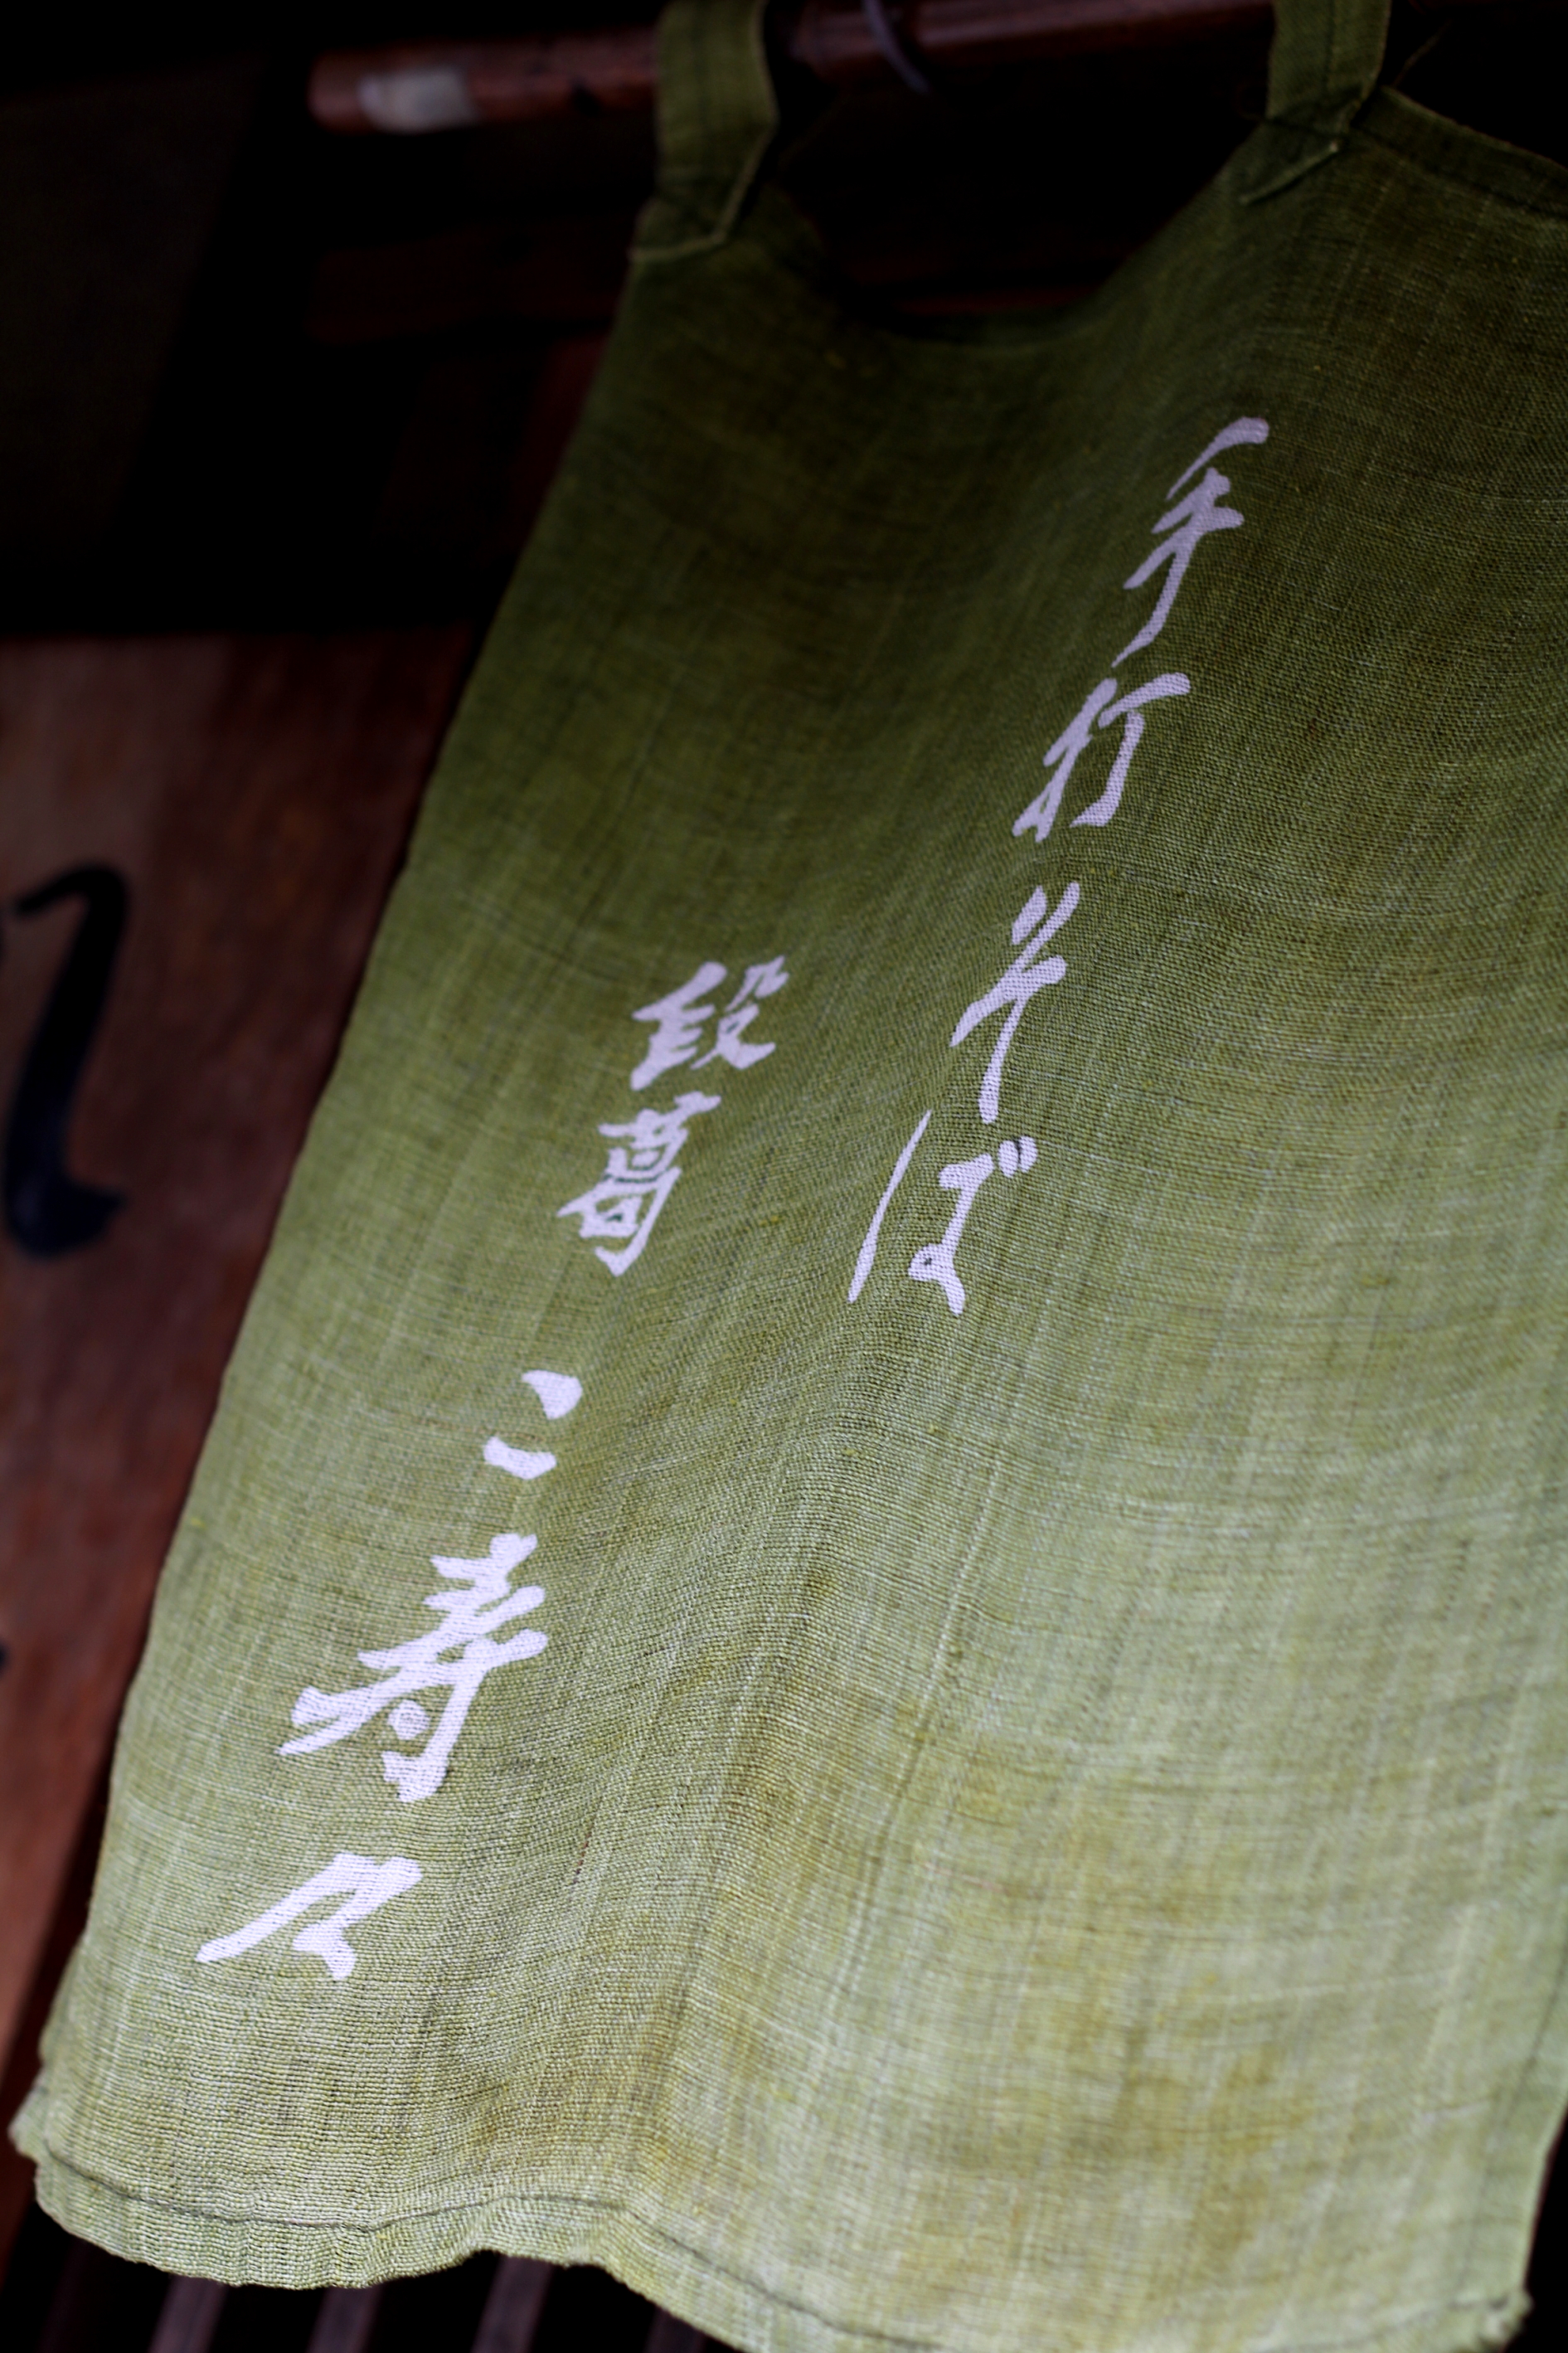 手打そば
段葛
こ寿々